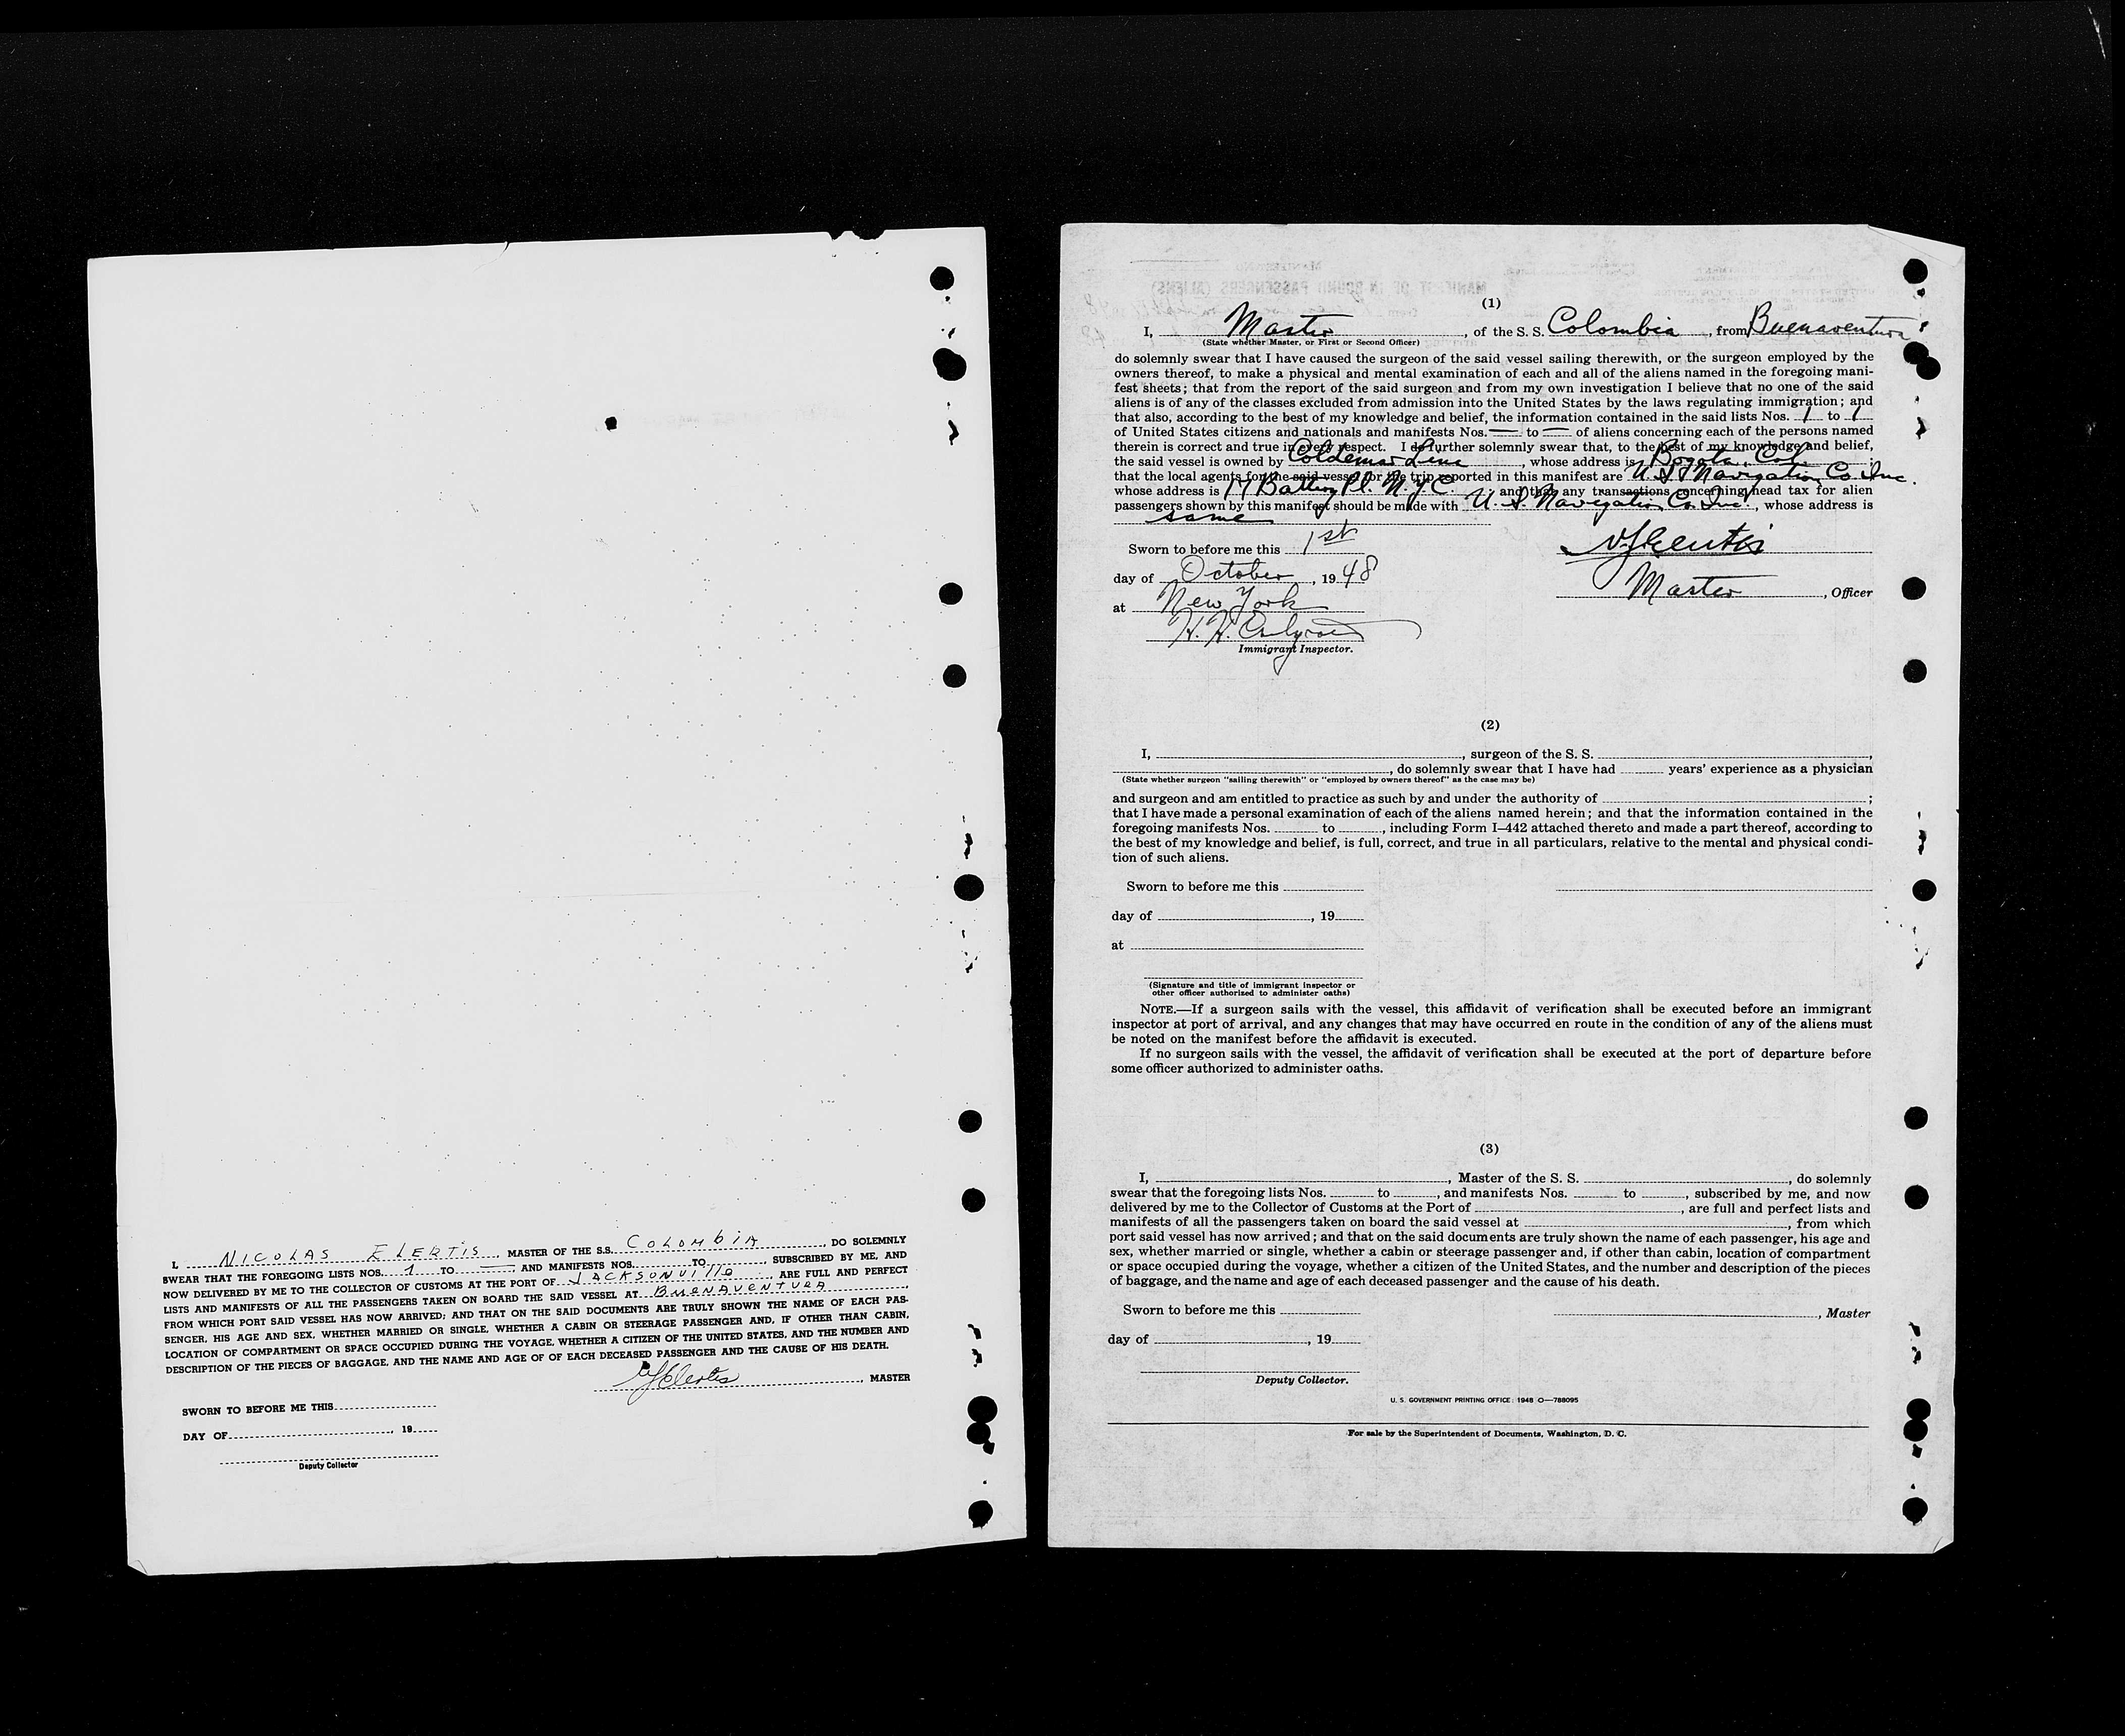 I, NICOLAS ELERTIS, MASTER OF THE S.S. COLOMBIA, DO SOLEMNLY
SWEAR THAT THE FOREGOING LISTS NOS. 1 TO — AND MANIFESTS NOS. TO , SUBSCRIBED BY ME, AND
NOW DELIVERED BY ME TO THE COLLECTOR OF CUSTOMS AT THE PORT OF JACKSONVILLE, ARE FULL AND PERFECT
LISTS AND MANIFESTS OF ALL THE PASSENGERS TAKEN ON BOARD THE SAID VESSEL AT BUENAVENTURA,
FROM WHICH PORT SAID VESSEL HAS NOW ARRIVED; AND THAT ON THE SAID DOCUMENTS ARE TRULY SHOWN THE NAME OF EACH PAS-
SENGER, HIS AGE AND SEX, WHETHER MARRIED OR SINGLE, WHETHER A CABIN OR STEERAGE PASSENGER AND, IF OTHER THAN CABIN,
LOCATION OF COMPARTMENT OR SPACE OCCUPIED DURING THE VOYAGE, WHETHER A CITIZEN OF THE UNITED STATES, AND THE NUMBER AND
DESCRIPTION OF THE PIECES OF BAGGAGE, AND THE NAME AND AGE OF OF EACH DECEASED PASSENGER AND THE CAUSE OF HIS DEATH.
, MASTER
SWORN TO BEFORE ME THIS
DAY OF , 19
Deputy Collector
(1)
I, Master, of the S. S. Colombia, from Buenaventura
(State whether Master, or First or Second Officer)
do solemnly swear that I have caused the surgeon of the said vessel sailing therewith, or the surgeon employed by the
owners thereof, to make a physical and mental examination of each and all of the aliens named in the foregoing mani-
fest sheets; that from the report of the said surgeon and from my own investigation I believe that no one of the said
aliens is of any of the classes excluded from admission into the United States by the laws regulating immigration; and
that also, according to the best of my knowledge and belief, the information contained in the said lists Nos. 1 to 1
of United States citizens and nationals and manifests Nos. — to — of aliens concerning each of the persons named
therein is correct and true in every respect. I do further solemnly swear that, to the best of my knowledge and belief,
the said vessel is owned by Coldemar Line, whose address is Bogota, Col
that the local agents for the said vessel for the trip reported in this manifest are U. S. Navigation Co Inc.
whose address is 17 Battery Pl. N.Y.C. ; and that any transactions concerning head tax for alien
passengers shown by this manifest should be made with U. S. Navigation Co. Inc., whose address is
same
Sworn to before me this 1st
day of October, 1948
at New York
Master, Officer
H. H.
Immigrant Inspector.
(2)
I, , surgeon of the S. S. ,
, do solemnly swear that I have had years' experience as a physician
(State whether surgeon "sailing therewith" or "employed by owners thereof" as the case may be)
and surgeon and am entitled to practice as such by and under the authority of ;
that I have made a personal examination of each of the aliens named herein; and that the information contained in the
foregoing manifests Nos. to , including Form I-442 attached thereto and made a part thereof, according to
the best of my knowledge and belief, is full, correct, and true in all particulars, relative to the mental and physical condi-
tion of such aliens.
Sworn to before me this
day of , 19
at
(Signature and title of immigrant inspector or
other officer authorized to administer oaths)
NOTE.—If a surgeon sails with the vessel, this affidavit of verification shall be executed before an immigrant
inspector at port of arrival, and any changes that may have occurred en route in the condition of any of the aliens must
be noted on the manifest before the affidavit is executed.
If no surgeon sails with the vessel, the affidavit of verification shall be executed at the port of departure before
some officer authorized to administer oaths.
(3)
I, , Master of the S. S. , do solemnly
swear that the foregoing lists Nos. to , and manifests Nos. to , subscribed by me, and now
delivered by me to the Collector of Customs at the Port of , are full and perfect lists and
manifests of all the passengers taken on board the said vessel at , from which
port said vessel has now arrived; and that on the said documents are truly shown the name of each passenger, his age and
sex, whether married or single, whether a cabin or steerage passenger and, if other than cabin, location of compartment
or space occupied during the voyage, whether a citizen of the United States, and the number and description of the pieces
of baggage, and the name and age of each deceased passenger and the cause of his death.
Sworn to before me this
, Master
day of , 19
Deputy Collector.
U. S. GOVERNMENT PRINTING OFFICE: 1948 O—788095
For sale by the Superintendent of Documents, Washington, D. C.